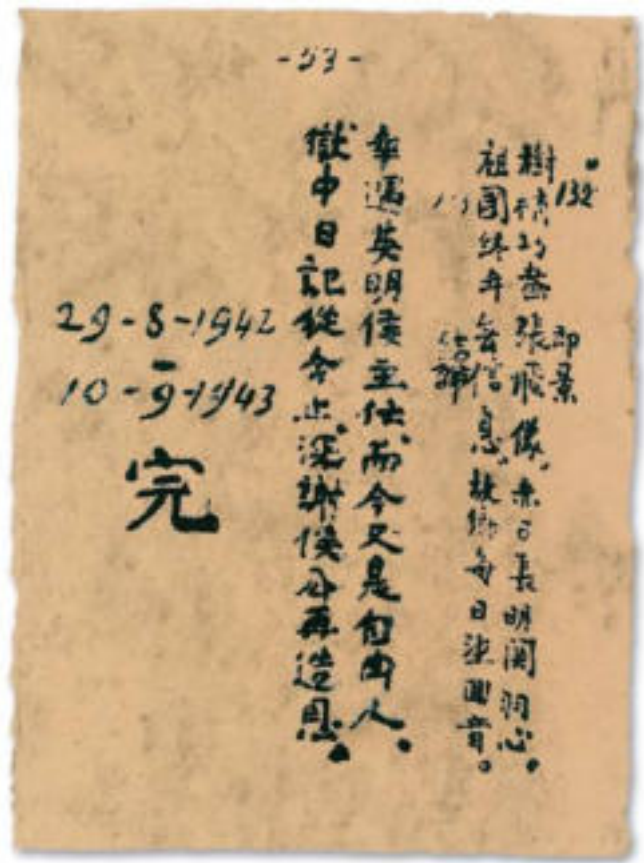 -53-
132
即景
樹梢巧畫張飛像，赤日長明關羽心。
祖國終年無信息，故鄉每日望囬音。
結論
幸遇英明侯主任，而今又是自由人。
獄中日記從今止，深謝侯公再造恩。
29-8-1942
-
10-9-1943
完